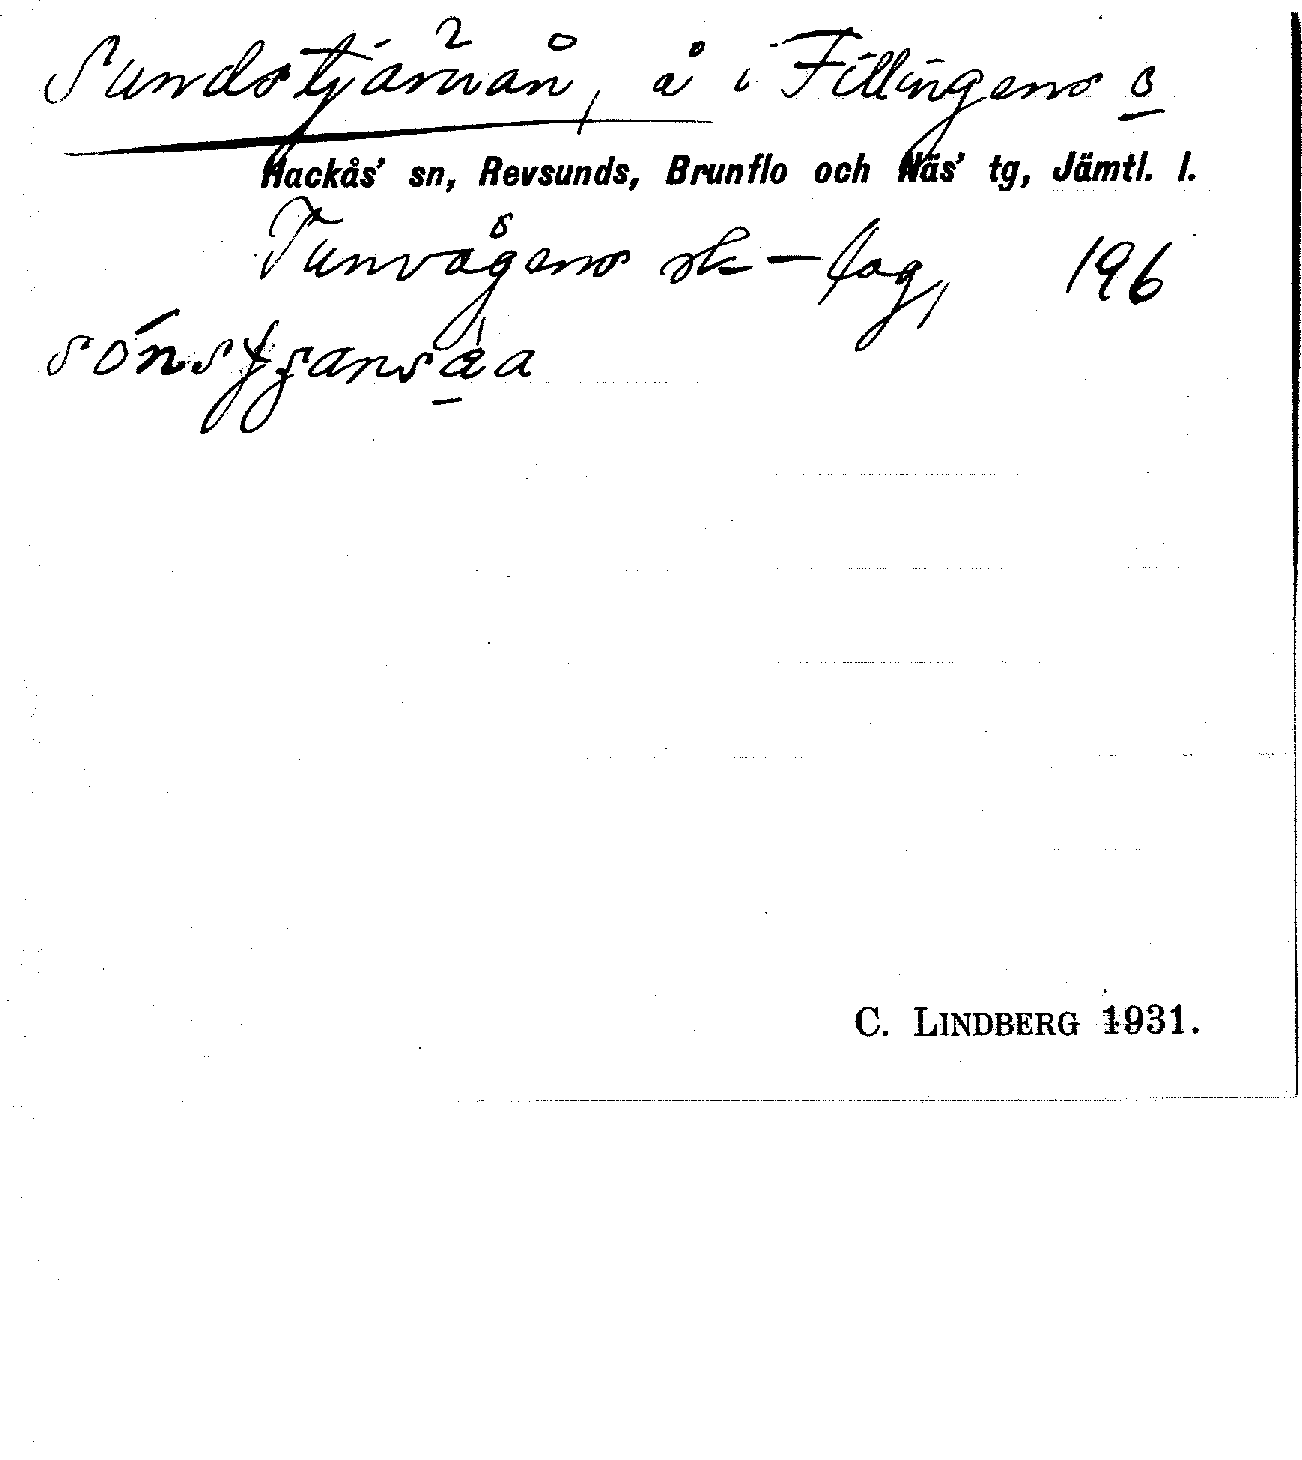 Sundstjärnån, å i Fillingens s
Hackås' sn, Revsunds, Brunflo och Näs' tg, Jämtl. l.
Tunvågens sk-lag, 196
C. LINDBERG 1931.